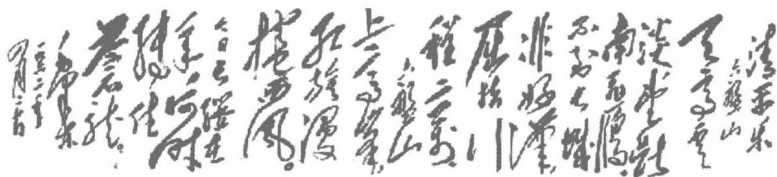 清平樂
六盤山
天高雲
淡望斷
南飛雁
不到長城
非好漢
屈指行
程二萬
六盤山
上高峰
紅旗漫
捲西風。
今日長纓在
手何時
縛住
蒼龍
毛澤東